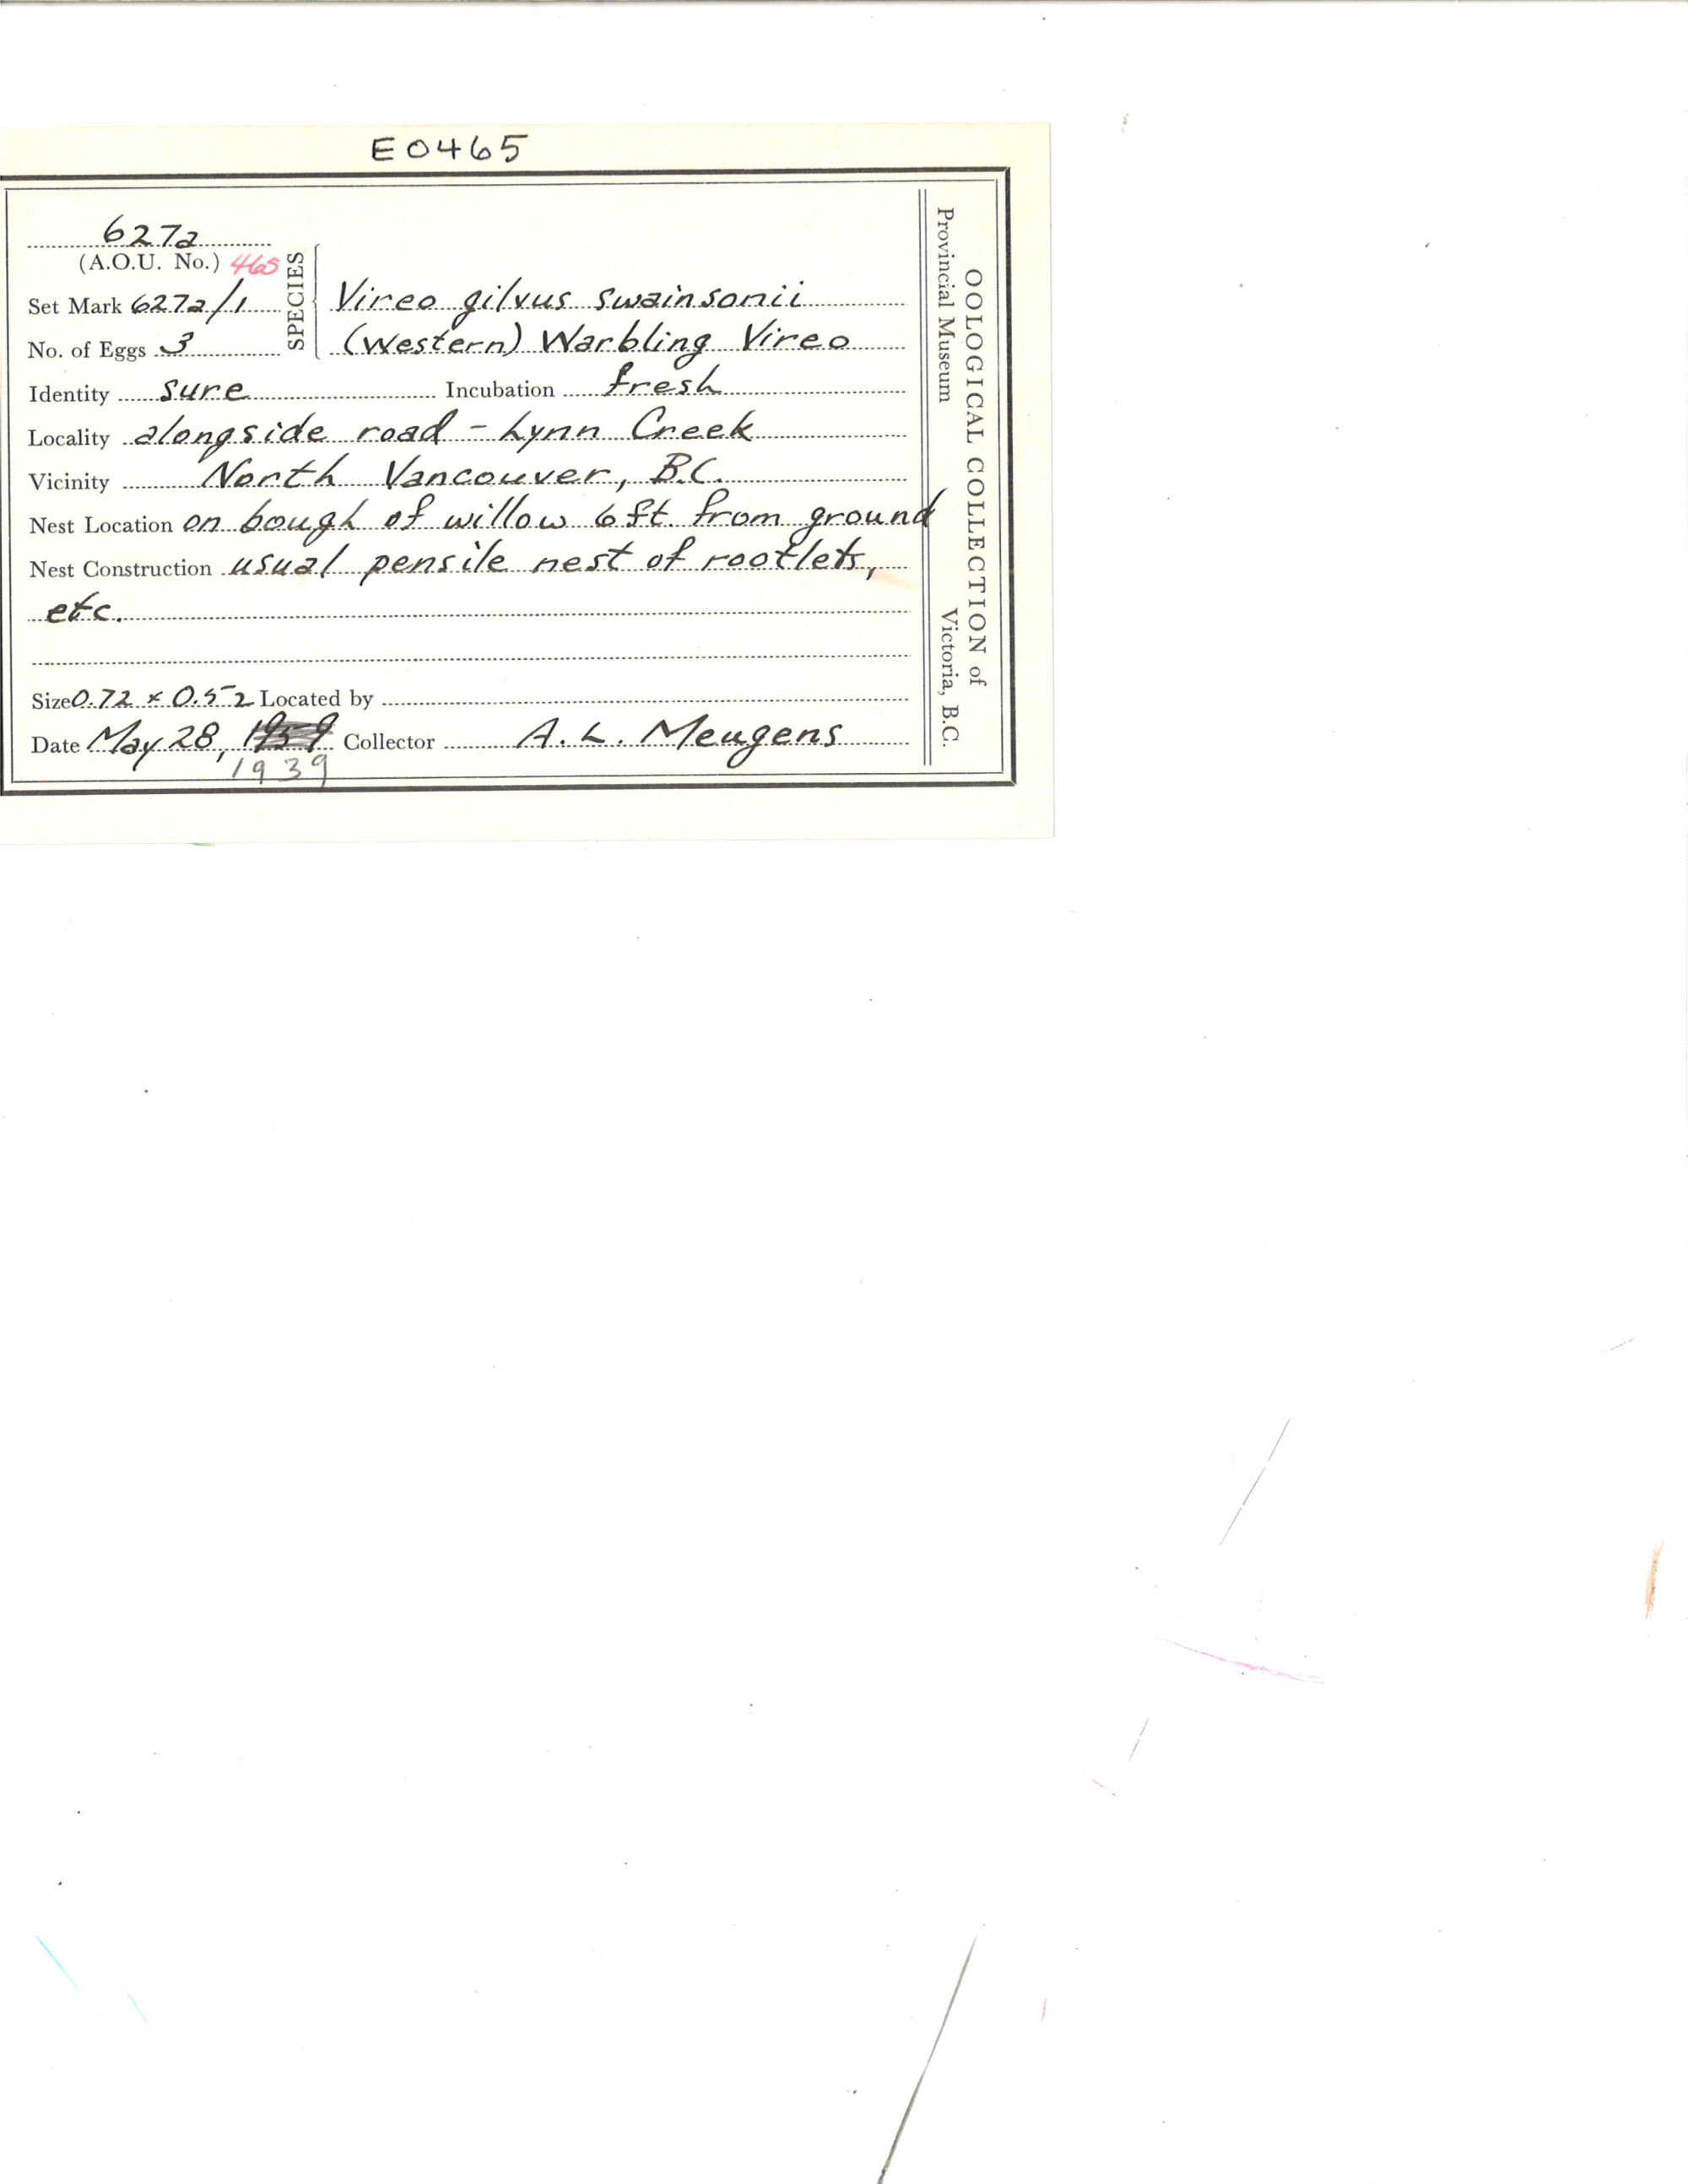 E0465
627a
(A.O.U. No.) 465
SPECIES
Set Mark 627a/1
Vireo gilvus swainsonii
No. of Eggs 3
(Western) Warbling Vireo
Identity sure Incubation fresh
Locality alongside road - Lynn Creek
Vicinity North Vancouver, B.C.
Nest Location on bough of willow 6 ft. from ground
Nest Construction usual pensile nest of rootlets,
etc.
Size 0.72 x 0.52 Located by
Date May 28, 1959 Collector A. L. Meugens
1939
OOLOGICAL COLLECTION of
Provincial Museum Victoria, B.C.